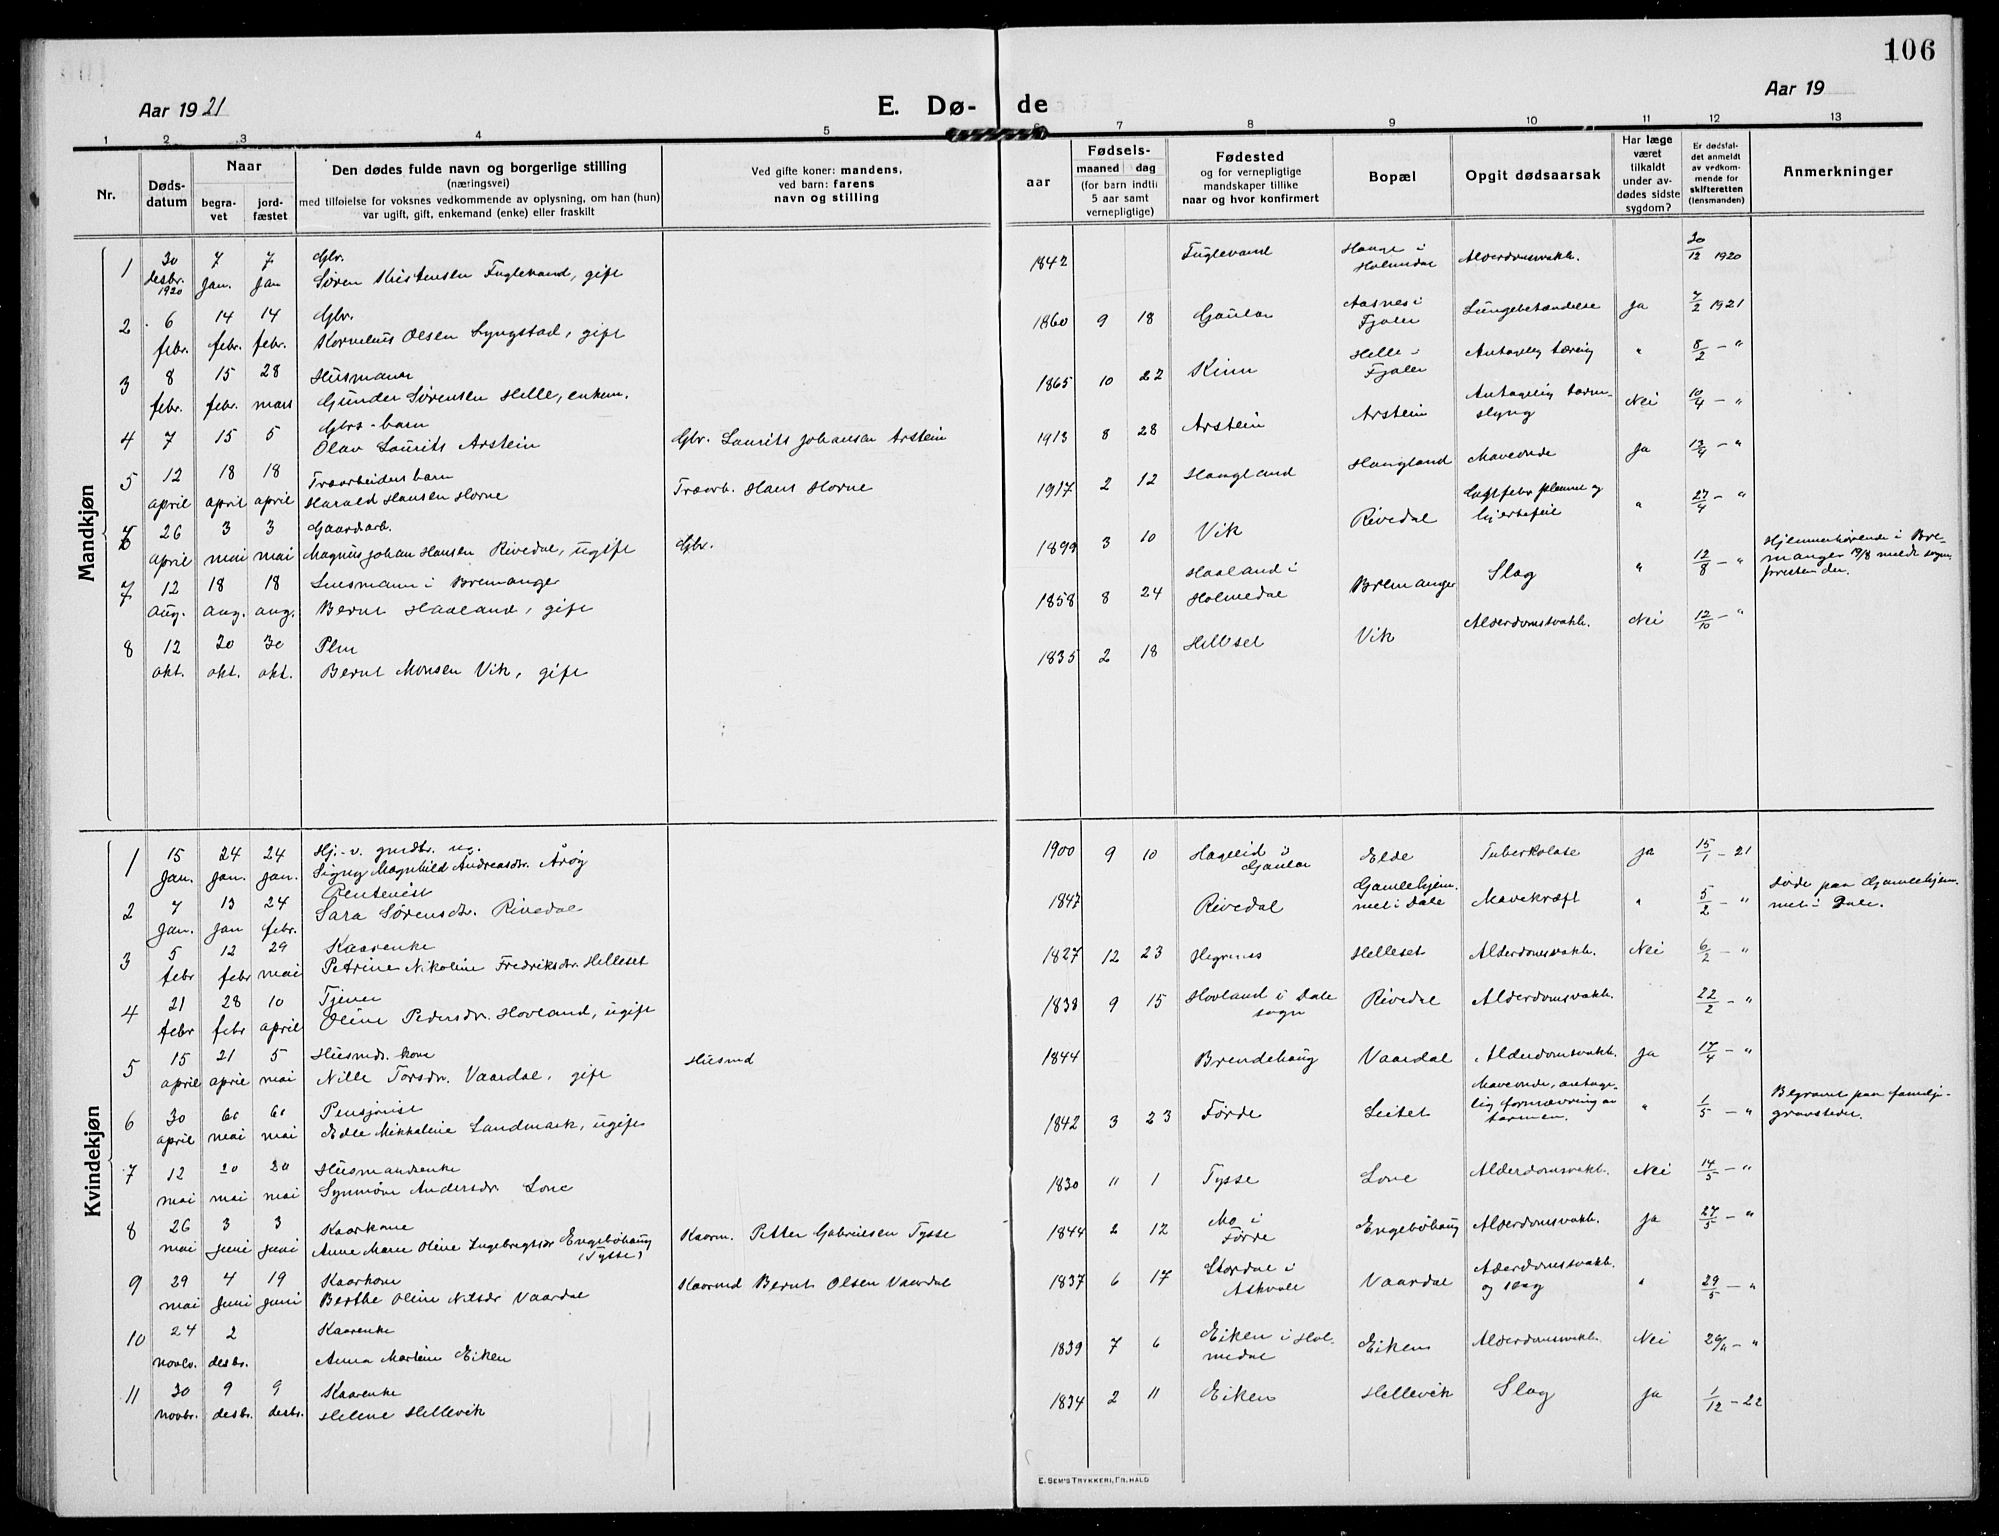 106
Aar 1921
E. Dø-de
Aar 19
1 2 3 4 5 6 7 8 9 10 11 12 13
Nr.
Døds-datum
Naar
begra-vet
jord-fæstet
Den dødes fulde navn og borgerlige stilling
(næringsvei)
med tilføielse for voksnes vedkommende av oplysning, om han (hun)
var ugift, gift, enkemand (enke) eller fraskilt
Ved gifte koner: mandens,
ved barn: farens
navn og stilling
Fødsels-
aar
maaned dag
(for barn indtil
5 aar samt
vernepligtige)
Fødested
og for vernepligtige
mandskaper tillike
naar og hvor konfirmert
Bopæl
Opgit dødsaarsak
Har læge
været
tilkaldt
under av-
dødes sidste
sygdom?
Er dødsfal-
det anmeldt
av vedkom-
mende for
skifteretten
(lensmanden)
Anmerkninger
Mandkjøn
1 30 desbr. 1920 7 jan. 7 jan Gbr.
Søren Kristensen Fuglevand, gift 1842 Fuglevand Hauge i Holmedal Alderdomsvakh. 30/12 1920
2 6 febr. 14 febr. 14 febr. Gbr.
Kornelius Olsen Lyngstad, gift 1860 9 18 Gaular Aasnes i Fjaler Lungebetændelse Ja 7/2 1921
3 8 febr. 15 febr. 28 mars Husmann
Gunder Sørensen Helle, enkem. 1865 10 22 Kinn Helle i Fjaler Antagelig tæring " 8/2 - "
4 7 15 5 Gbrs-barn
Olav Laurits Arstein Gbr. Laurits Johansen Arstein 1913 8 28 Arstein Arstein Antagelig tarmslyng Nei 10/4 - "
5 12 april 18 april 18 april Træarbeiders barn
Harald Hansen Horne Træarb. Hans Horne 1917 2 12 Haugland Haugland Maveonde Ja 13/4 - "
6 26 april 3 mai 3 mai Gaardarb.
Magnus Johan Hansen Rivedal, ugift Gbr. 1899 3 10 Vik Rivedal hjertefeil " 27/4 - "
7 12 aug. 18 aug. 18 aug. Lensmann i Bremanger
Bernt Haaland, gift 1858 8 24 Haaland i Holmedal Bremanger Slag " 12/8 - " Hjemmehørende i Bremanger 19/8 meldt sogn
8 12 okt. 20 okt. 30 okt. Plm
Bernt Monsen Vik, gift 1835 2 18 Helleset Vik Alderdomsvakh. Nei 12/10 - "
Kvindekjøn
1 15 Jan. 24 Jan. 24 Jan. Hj.-v. gmdtr. ug.
Signy Magnhild Andreasdr. Årøy 1900 9 10 Hageid i Gaular Elde Tuberkolose Ja 15/1 - 21
2 7 Jan. 13 Jan 24 febr. Rentenist
Sara Sørensdtr. Rivedal 1847 Rivedal Gamlehjemmet i Dale Mavekræft " 5/2 - " Døde paa Gamlehjemmet i Dale.
3 5 febr 12 febr 29 mai Kaarenke
Petrine Nikoline Fredriksdr. Helleset 1827 12 23 Hegrenes Helleset Alderdomsvakh. Nei 6/2 - "
4 21 febr 28 febr 10 april Tjener
Oline Pedersdr. Hovland, ugift 1838 9 15 Hovland i Dale sogn Rivedal Alderdomsvakh. 22/2 - "
5 15 april 21 april 5 mai Husmds. kone
Nille Torsdr. Vaardal, gift Husmd 1844 Brendehaug Vaardal Alderdomsvakh. Ja 17/4 - "
6 30 april 6 mai 6 mai Pensjonist
Edle Mikkaline Landmark, ugift 1842 3 23 Førde Leitet Maveonde, antagelig forsnævring av tarmen. " 1/5 - " Begravet paa familjegravstedet.
7 12 mai 20 mai 20 mai Husmandsenke
Synnøve Andersdr Lone 1830 11 1 Tysse Lone Alderdomsvakh. Nei 14/5 - "
8 26 mai 3 juni 3 juni Kaarkone
Anne Marie Oline Ingebregtsdr Engebøhaug (Tysse) Kaarm. Petter Gabrielsen Tysse 1844 2 12 Mo i Førde Engebøhaug Alderdomsvakh. Ja 27/5 - "
9 29 mai 4 juni 19 juni Kaarkone
Berthe Oline Nilsdr Vaardal Kaarmd Bernt Olsen Vaardal 1837 6 17 Stordal i Askvoll Vaardal Alderdomsvakh. og slag " 29/5 - "
10 24 novb. 2 desbr. Kaarenke
Anna Martine Eiken 1839 7 6 Eiken i Holmedal Eiken Alderdomsvakh. Nei 26/11 - "
11 30 novbr. 9 desbr. 9 desbr. Kaarenke
Helene Hellevik 1834 2 11 Eiken Hellevik Slag Ja 1/12 - 22
E. SEM'S TRYKKERI, FR.HALD